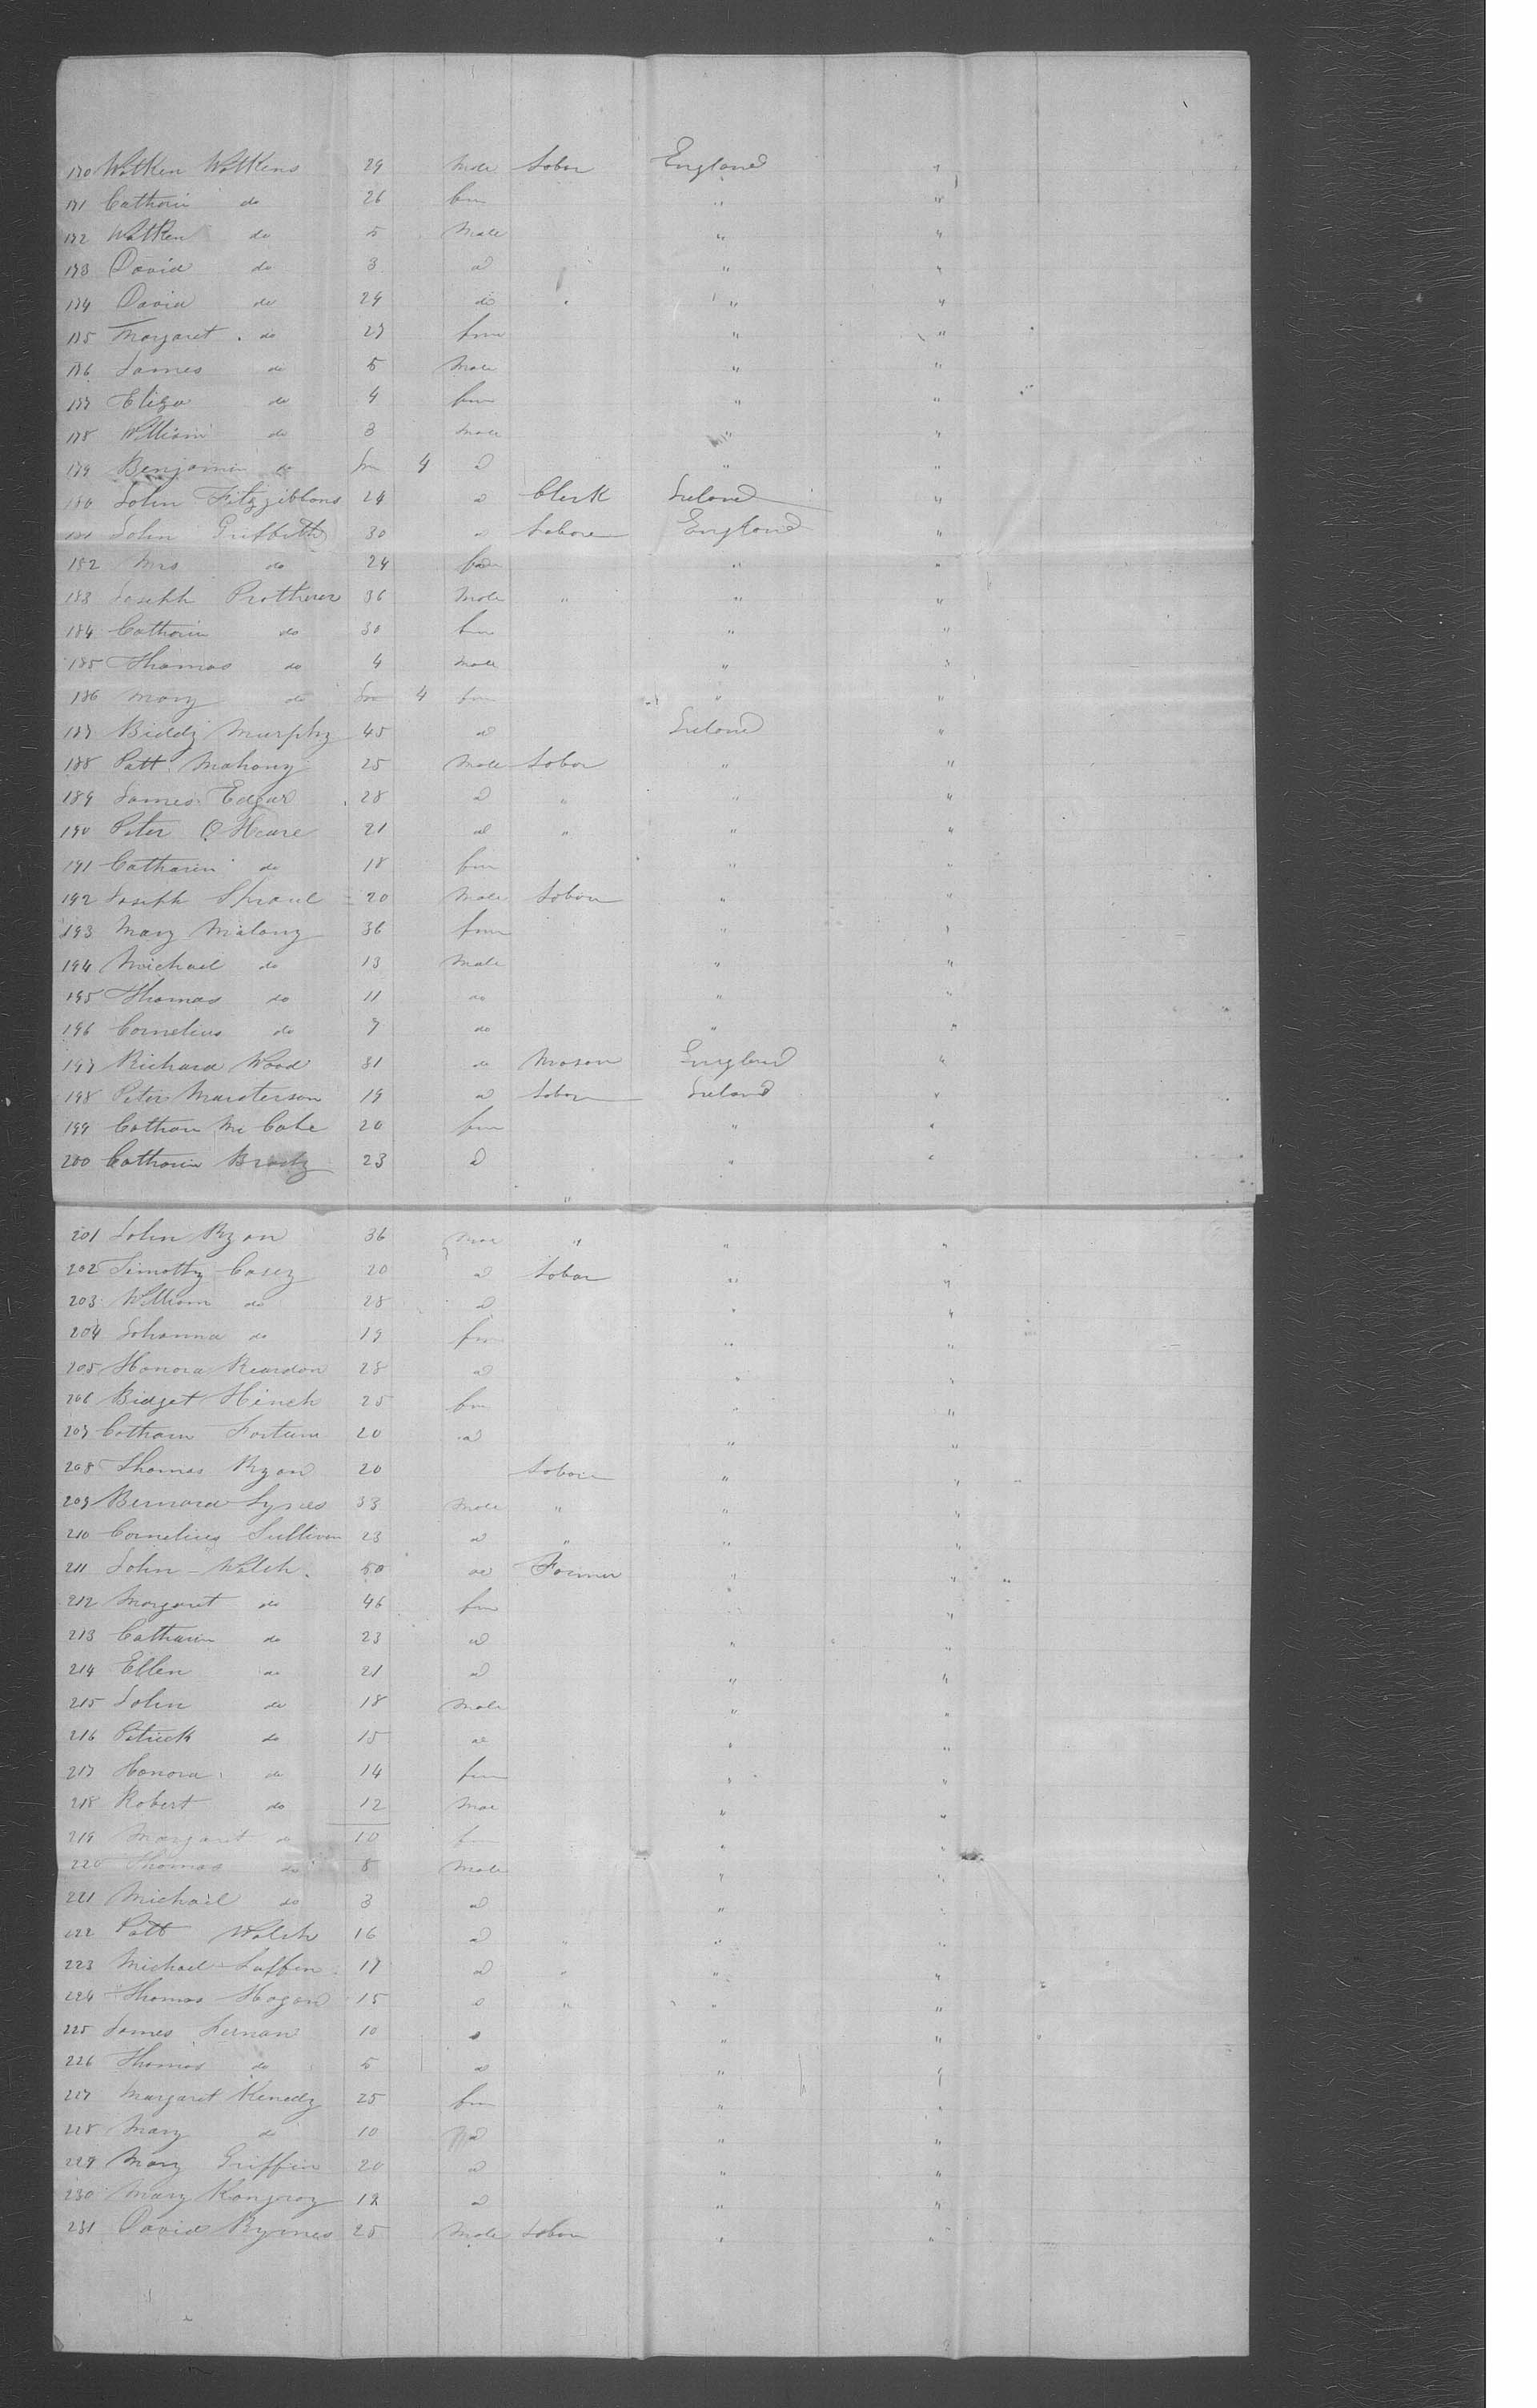 170 Watken Watkens 29 Male Labor England "
171 Catharin do 26 fm " "
172 Watken do 5 Male " "
173 David do 3 d " "
174 David do 29 do " "
175 Margaret do 27 fm " "
176 James do 5 Male " "
177 Eliza do 4 fm " "
178 William do 3 Male " "
179 Benjamin do In 4 d " "
180 John Fitzgibbons 24 d Clerk Ireland "
181 John Griffith 30 d Labore England "
182 Mrs do 24 " "
183 Joseph Protherer 36 Male " " "
184 Catharin do 30 fm " "
185 Thomas do 4 Male " "
186 Mary do In 4 fm " "
187 Biddy Murphy 45 d Ireland "
188 Patt Mahony 25 Male Labor " "
189 James Edgar 28 d " " "
190 Peter O Heare 21 d " " "
191 Catharin do 18 fm " "
192 Joseph 20 Male Labor " "
193 Mary Malony 36 fm " "
194 Michael do 13 Male " "
195 Thomas do 11 do " "
196 Cornelius do 7 do " "
197 Richard Wood 31 do Mason England "
198 Peter Marsterson 19 d Labor Ireland "
199 Catharn Mc Cabe 20 fm " "
200 Catharin Brady 23 d " "
"
201 John Ryan 36 Male " " "
202 Timothy Casey 20 d Labor " "
203 William do 28 d " "
204 Johanna do 19 fm " "
205 Honora Reardon 28 d " "
206 Bidget Hinch 25 fm " "
207 Catharn Fortune 20 d " "
208 Thomas Ryan 20 Labor " "
209 Bernard Lynes 33 Male " " "
210 Cornelius Sullivan 23 d " " "
211 John Walch 50 d Farmer " "
212 Margaret do 46 fm " "
213 Catharin do 23 d " "
214 Ellen do 21 d " "
215 John do 18 Male " "
216 Patrick do 15 d " "
217 Honora do 14 fm " "
218 Robert do 12 Mae " "
219 Margaret do 10 fm " "
220 Thomas do 8 Male " "
221 Michael do 3 d " "
222 Patt Walch 16 d " " "
223 Michael Laffin 17 d " " "
224 Thomas Hogan 15 d " " "
225 James 10 d " "
226 Thomas do 5 d " "
227 Margaret Kenedy 25 fm " "
228 Mary do 10 d " "
229 Mary Griffin 20 d " "
230 Mary 19 d " "
231 David Byrnes 25 Male Labor " "